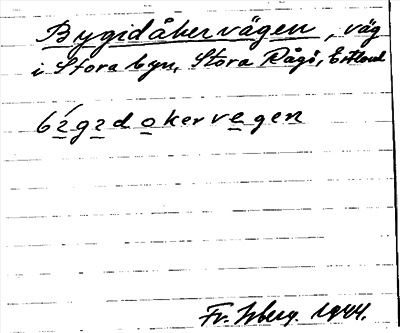 Bygidåkervägen, väg
i Stora byn, Stora Rågö, Estland
bí̲gi̲do̲kerve̲gen
Fr. Isberg. 1944.